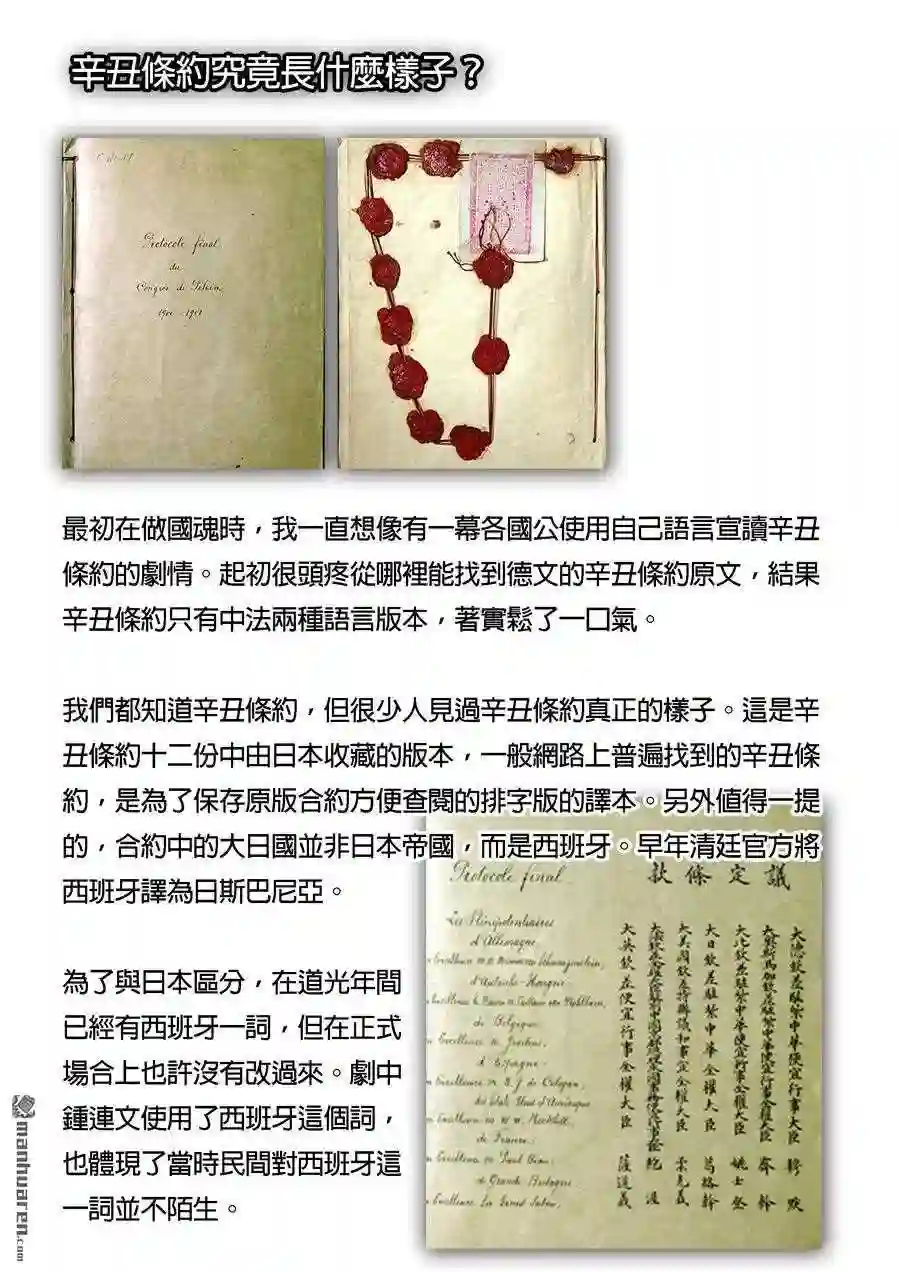 辛丑條約究竟長什麼樣子？
Protocole final
du
Congrès de Pékin
1900-1901
最初在做國魂時，我一直想像有一幕各國公使用自己語言宣讀辛丑
條約的劇情。起初很頭疼從哪裡能找到德文的辛丑條約原文，結果
辛丑條約只有中法兩種語言版本，著實鬆了一口氣。
我們都知道辛丑條約，但很少人見過辛丑條約真正的樣子。這是辛
丑條約十二份中由日本收藏的版本，一般網路上普遍找到的辛丑條
約，是為了保存原版合約方便查閱的排字版的譯本。另外值得一提
的，合約中的大日國並非日本帝國，而是西班牙。早年清廷官方將
西班牙譯為日斯巴尼亞。
為了與日本區分，在道光年間
已經有西班牙一詞，但在正式
場合上也許沒有改過來。劇中
鍾連文使用了西班牙這個詞，
也體現了當時民間對西班牙這
一詞並不陌生。
Protocole final
Les Plénipotentiaires
d'Allemagne
d'Autriche-Hongrie
de Belgique
d'Espagne
des Etats Unis d'Amérique
de France
de Grande Bretagne
議定條款
大德欽差駐紮中華便宜行事大臣 穆默
大比欽差駐紮中華便宜行事全權大臣 姚士登
大日欽差駐紮中華全權大臣 葛絡幹
大美國欽差特辦議和事宜全權大臣 柔克義
大英欽差便宜行事全權大臣 薩道義
manhuaren.com